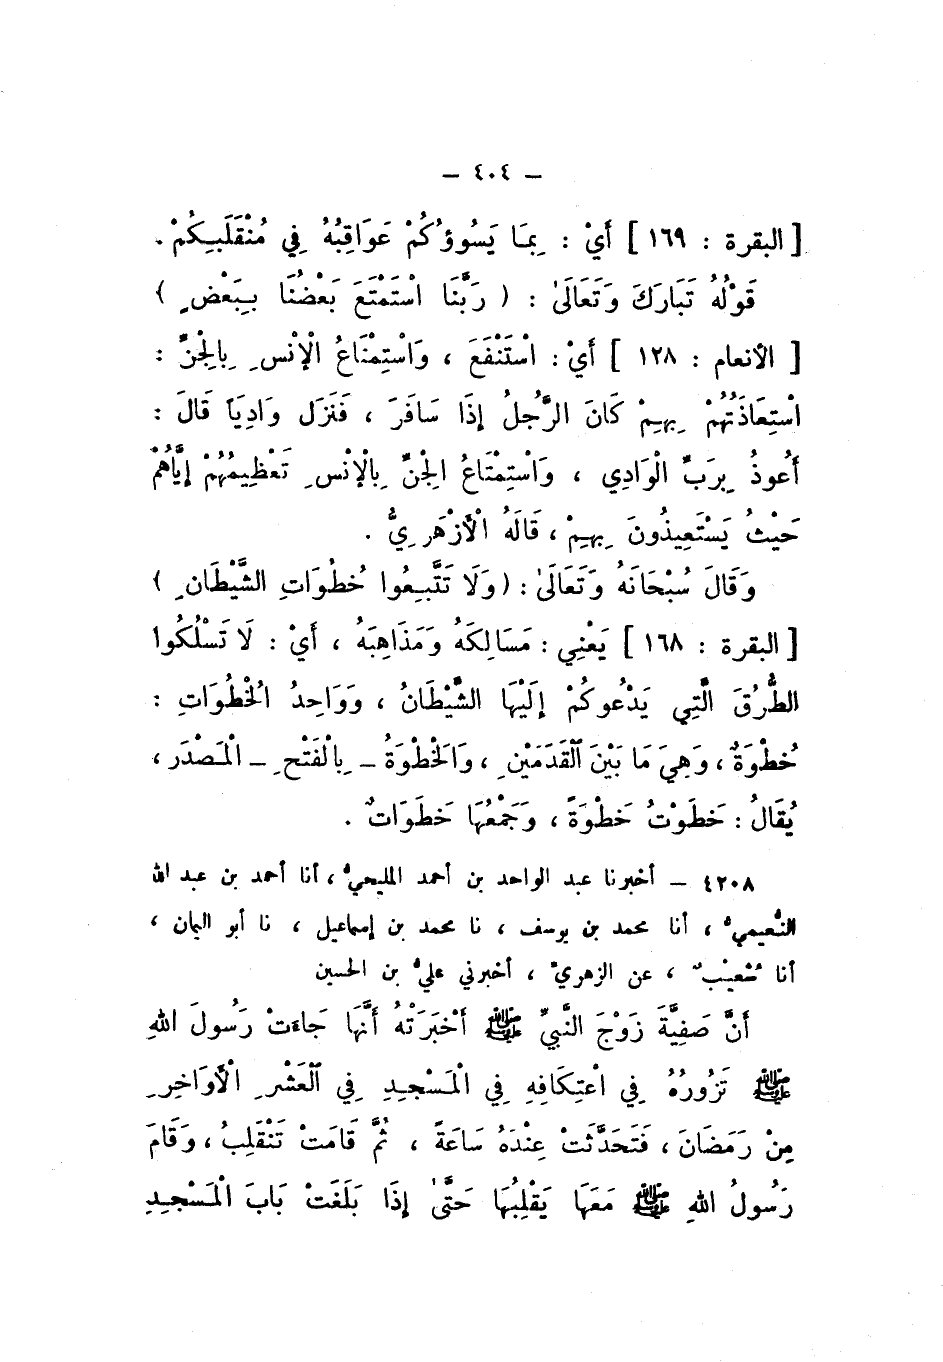 – ٤٠٤ –
[ البقرة : ١٦٩ ] أَيْ : بِمَا يَسُوؤُكُمْ عَوَاقِبُهُ فِي مُنْقَلَبِكُمْ .
قَوْلُهُ تَبَارَكَ وَتَعَالَىٰ : ( رَبَّنَا اسْتَمْتَعَ بَعْضُنَا بِبَعْضٍ )
[ الأنعام : ١٢٨ ] أَيْ : اسْتَنْفَعَ ، وَاسْتِمْتَاعُ الْإنْسِ بِالجِنِّ :
اسْتِعَاذَتُهُمْ بِهِمْ كَانَ الرَّجُلُ إِذَا سَافَرَ ، فَنَزَل وَادِيَاً قَالَ :
أَعُوذُ بِرَبِّ الْوَادِي ، وَاسْتِمْتَاعُ الجِنِّ بِالْإنْسِ تَعْظِيمُهُمْ إيَّاهُمْ
حَيْثُ يَسْتَعِيذُونَ بِهِمْ ، قَالَهُ الْأَزْهَرِيُّ .
وَقَالَ سُبْحَانَهُ وَتَعَالَىٰ : ( وَلَا تَتَّبِعُوا خُطُوَاتِ الشَّيْطَانِ )
[ البقرة : ١٦٨ ] يَعْنِي : مَسَالِكَهُ وَمَذَاهِبَهُ ، أَيْ : لَا تَسْلُكُوا
الطُّرُقَ الَّتِي يَدْعُوكُمْ إِلَيْهَا الشَّيْطَانُ ، وَوَاحِدُ الْخُطُوَاتِ :
خُطْوَةٌ ، وَهِيَ مَا بَيْنَ الْقَدَمَيْنِ ، وَالْخَطْوَةُ – بِالْفَتْحِ – الْمَصْدَر ،
يُقَالُ : خَطَوْتُ خَطْوَةً ، وَجَمْعُهَا خَطَوَاتٌ .
٤٢٠٨ – أخبرنا عبد الواحد بن أحمد المليحيُّ ، أنا أحمد بن عبد الله
النُّعيميُّ ، أنا محمد بن يوسف ، نا محمد بن إسماعيل ، نا أبو اليمان ،
أنا شُعيبٌ ، عن الزهريِّ ، أخبرني عليُّ بن الحسين
أَنَّ صَفِيَّةَ زَوْجَ النَّبِيِّ ﷺ أَخْبَرَتْهُ أَنَّهَا جَاءَتْ رَسُولَ اللهِ
ﷺ تَزُورُهُ فِي اعْتِكَافِهِ فِي الْمَسْجِدِ فِي الْعَشْرِ الْأَوَاخِرِ
مِنْ رَمَضَانَ ، فَتَحَدَّثَتْ عِنْدَهُ سَاعَةً ، ثُمَّ قَامَتْ تَنْقَلِبُ ، وَقَامَ
رَسُولُ اللهِ ﷺ مَعَهَا يَقْلِبُهَا حَتَّىٰ إِذَا بَلَغَتْ بَابَ الْمَسْجِدِ